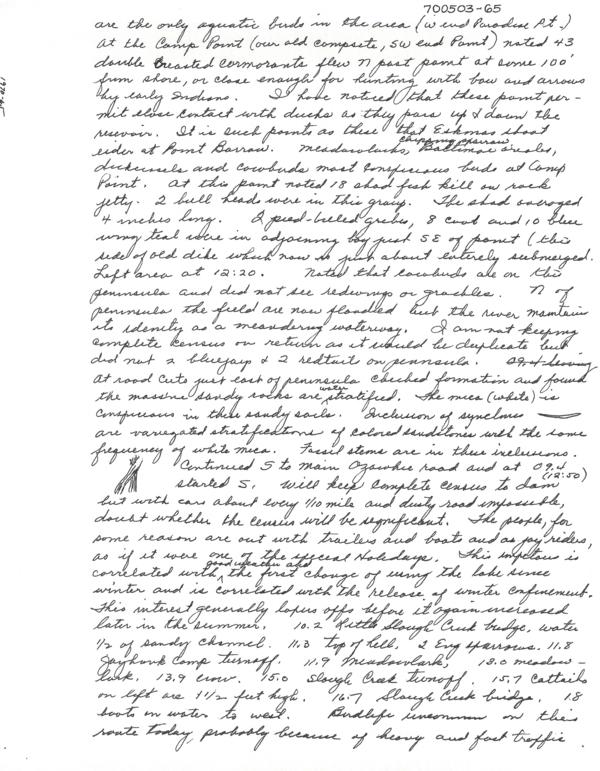 700503-65
are the only aquatic birds in the area (W end Paradise Pt.)
At the Camp Point (our old campsite, SW end Point) noted 43
double breasted cormorants flew N past point at some 100'
from shore, or close enough for hunting with bow and arrows
by early Indians. I have noticed that these points per-
mit close contact with ducks as they pass up & down the
resevoir. It is such points as these that Eskimos shoot
eider at Point Barrow. Meadowlarks, chipping sparrow Baltimore orioles,
dickcissels and cowbirds most conspicuous birds at Camp
Point. At this point noted 18 shad fish kill on rock
jetty. 2 bull heads were in this group. The shad averaged
4 inches long. 2 pied-billed grebes, 8 coot and 10 blue
wing teal were in adjoining bay just SE of point (this
side of old dike which now is just about entirely submerged.
Left area at 12:20. Noted that cowbirds are on this
peninsula and did not see redwings or grackles. N of
peninsula the field are now flooded but the river maintains
its idenity as a meandering waterway. I am not keeping
complete census on return as it would be duplicate but
did not 2 bluejays & 2 redtail on peninsula.
At road cuts just east of peninsula checked formation and found
the massive sandy rocks are water stratified. The mica (white) is
conspicuous in these sandy soils. Inclusion of synclines
are variegated stratifications of colored sandstones with the same
frequency of white mica. Fossil stems are in these inclusions.
Continued S to main Ozawkie road and at 09.4
(12:50)
started S. Will keep complete census to dam
but with cars about every 1/10 mile and dusty road impossible,
doubt whether the census will be significant. The people, for
some reason are out with trailers and boats and as joy riders,
as if it were one of the special Holidays. This impetus is
correlated with good weather and the first change of using the lake since
winter and is correlated with the release of winter confinement.
This interest generally tapers offs before it again increased
later in the summer. 10.2 Little Slough Creek bridge, water
1/2 of sandy channel. 11.3 top of hill, 2 Eng sparrows. 11.8
Jayhawk Camp turnoff. 11.9 Meadowlark, 13.0 meadow-
lark. 13.9 crow. 15.0 Slough Creek turnoff. 15.7 Cattails
on left are 1 1/2 feet high. 16.7 Slough Creek bridge. 18
boats on water to west. Birdlife uncommon on this
route today, probably because of heavy and fast traffic.